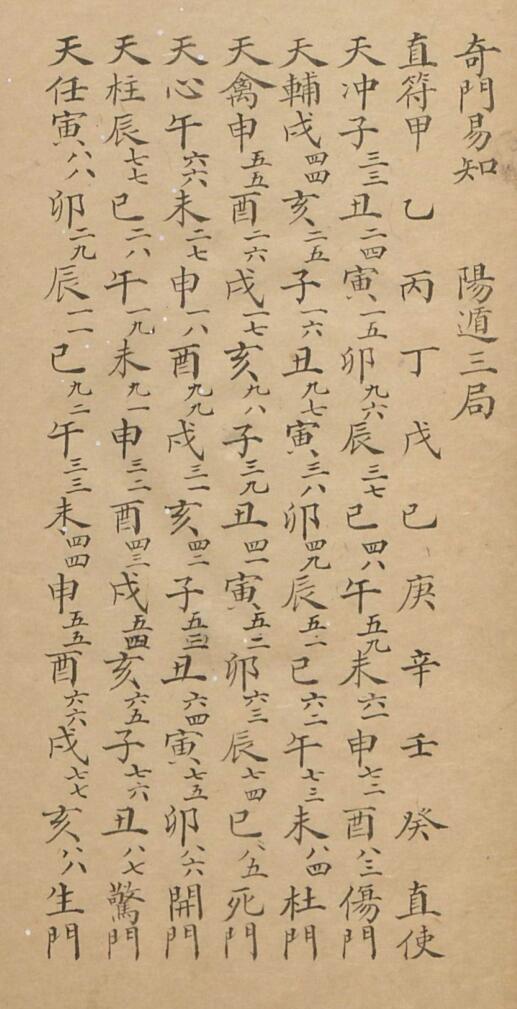 奇門易知 陽遁三局
直符甲 乙 丙 丁 戊 己 庚 辛 壬 癸 直使
天冲子三三丑二四寅一五卯九六辰三七巳四八午五九未六一申七二酉八三傷門
天輔戌四四亥二五子一六丑九七寅三八卯四九辰五一巳六二午七三未八四杜門
天禽申五五酉二六戌一七亥九八子三九丑四一寅五二卯六三辰七四巳八五死門
天心午六六未二七申一八酉九九戌三一亥四二子五三丑六四寅七五卯八六開門
天柱辰七七巳二八午一九未九一申三二酉四三戌五四亥六五子七六丑八七驚門
天任寅八八卯二九辰一一巳九二午三三未四四申五五酉六六戌七七亥八八生門